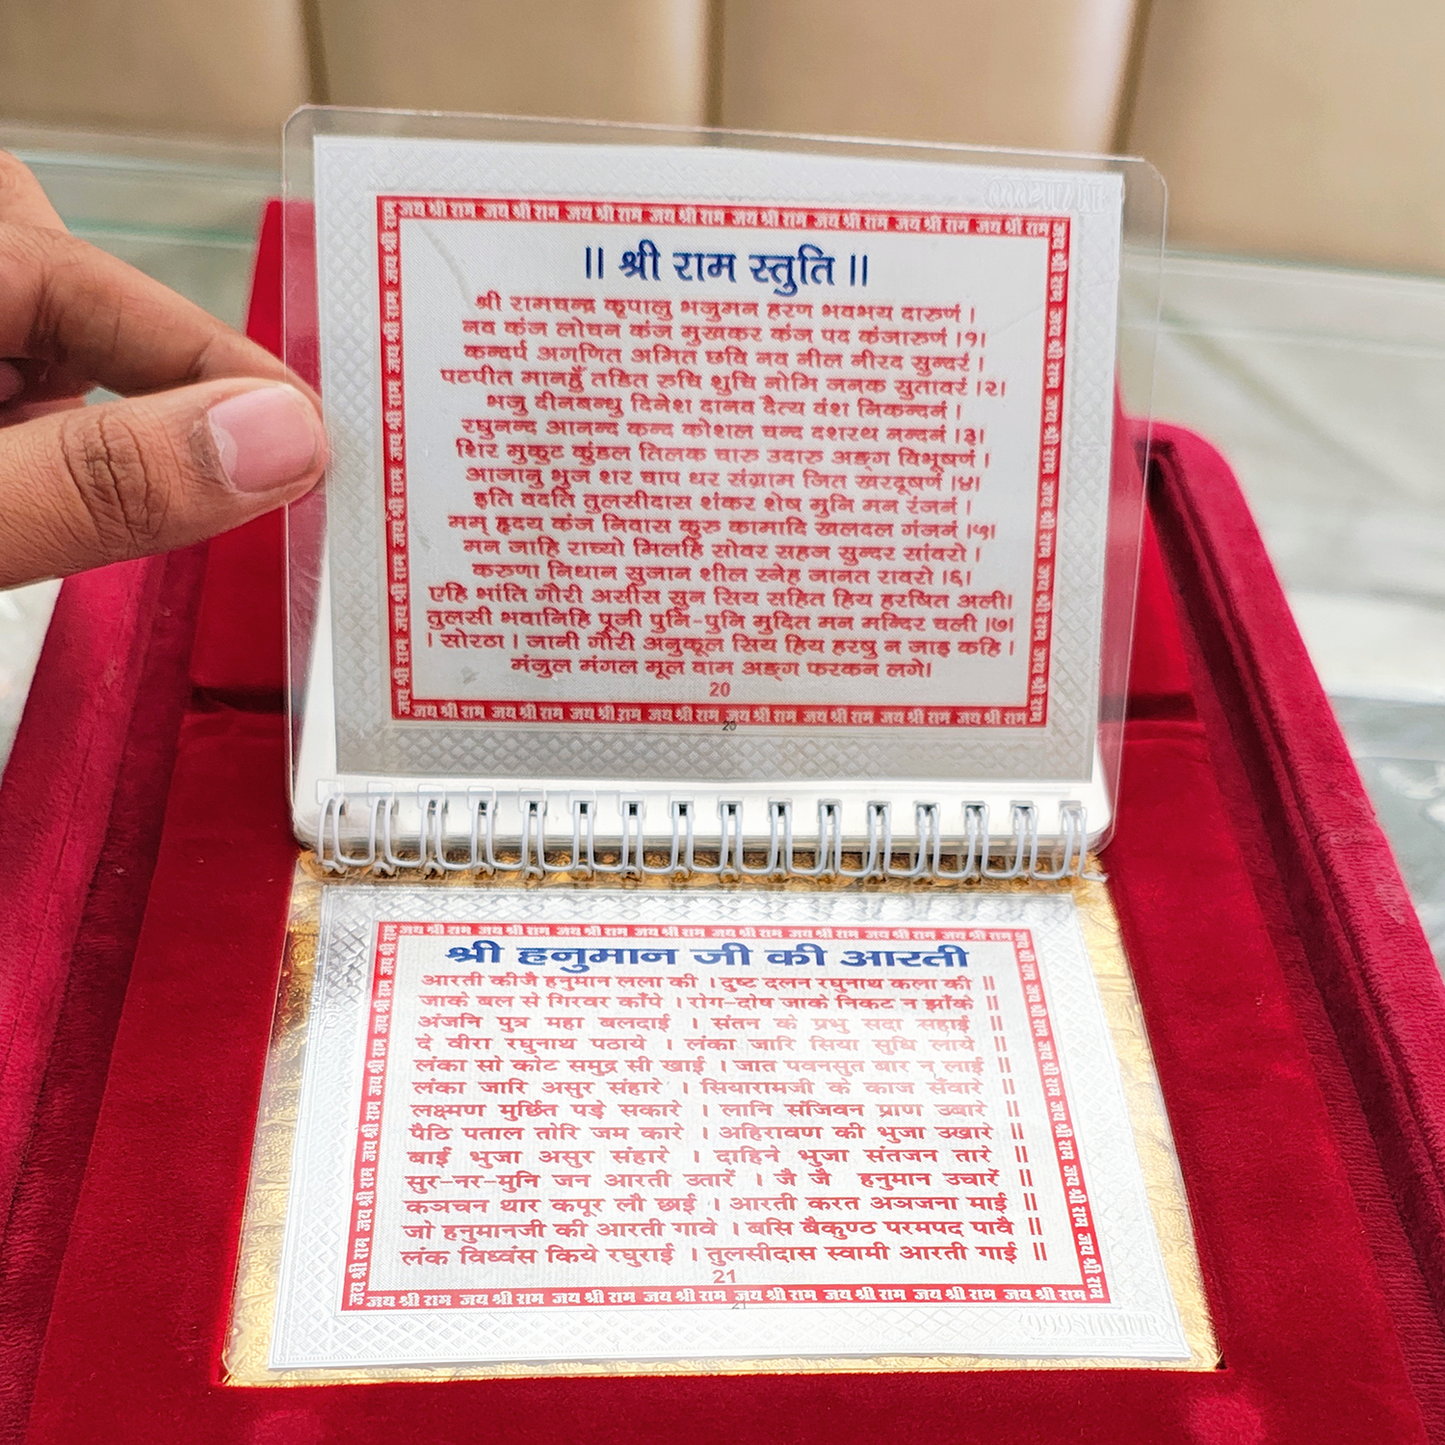 जय श्री राम जय श्री राम जय श्री राम जय श्री राम जय श्री राम जय श्री राम जय श्री राम जय श्री राम
|| श्री राम स्तुति ||
श्री रामचन्द्र कृपालु भजुमन हरण भवभय दारुणं ।
नव कंज लोचन कंज मुखकर कंज पद कंजारुणं ।१।
कन्दर्प अगणित अमित छवि नव नील नीरद सुन्दरं ।
पटपीत मानहुँ तडित रुचि शुचि नोमि जनक सुतावरं ।२।
भजु दीनबन्धु दिनेश दानव दैत्य वंश निकन्दनं ।
रघुनन्द आनन्द कन्द कोशल चन्द दशरथ नन्दनं ।३।
शिर मुकुट कुंडल तिलक चारु उदारु अङ्ग विभूषणं ।
आजानु भुज शर चाप धर संग्राम जित खरदूषणं ।४।
इति वदति तुलसीदास शंकर शेष मुनि मन रंजनं ।
मम् हृदय कंज निवास कुरु कामादि खलदल गंजनं ।५।
मन जाहि राच्यो मिलहि सोवर सहज सुन्दर सांवरो ।
करुणा निधान सुजान शील स्नेह जानत रावरो ।६।
एहि भांति गौरी असीस सुन सिय सहित हिय हरषित अली।
तुलसी भवानिहि पूजी पुनि-पुनि मुदित मन मन्दिर चली ।७।
। सोरठा । जानी गौरी अनुकूल सिय हिय हरषु न जाइ कहि ।
मंजुल मंगल मूल वाम अङ्ग फरकन लगे।
20
जय श्री राम जय श्री राम जय श्री राम जय श्री राम जय श्री राम जय श्री राम जय श्री राम जय श्री राम
20
जय श्री राम जय श्री राम जय श्री राम जय श्री राम जय श्री राम जय श्री राम जय श्री राम जय श्री राम
श्री हनुमान जी की आरती
आरती कीजै हनुमान लला की । दुष्ट दलन रघुनाथ कला की ||
जाके बल से गिरवर काँपे । रोग-दोष जाके निकट न झाँके ||
अंजनि पुत्र महा बलदाई । संतन के प्रभु सदा सहाई ||
दे वीरा रघुनाथ पठाये । लंका जारि सिया सुधि लाये ||
लंका सो कोट समुद्र सी खाई । जात पवनसुत बार न लाई ||
लंका जारि असुर संहारे । सियारामजी के काज सँवारे ||
लक्ष्मण मुर्छित पड़े सकारे । लानि संजिवन प्राण उबारे ||
पैठि पताल तोरि जम कारे । अहिरावण की भुजा उखारे ||
बाईं भुजा असुर संहारे । दाहिने भुजा संतजन तारे ||
सुर-नर-मुनि जन आरती उतारें । जै जै हनुमान उचारें ||
कञचन थार कपूर लौ छाई । आरती करत अञजना माई ||
जो हनुमानजी की आरती गावे । बसि बैकुण्ठ परमपद पावै ||
लंक विध्वंस किये रघुराई । तुलसीदास स्वामी आरती गाई ||
21
जय श्री राम जय श्री राम जय श्री राम जय श्री राम जय श्री राम जय श्री राम जय श्री राम जय श्री राम
21